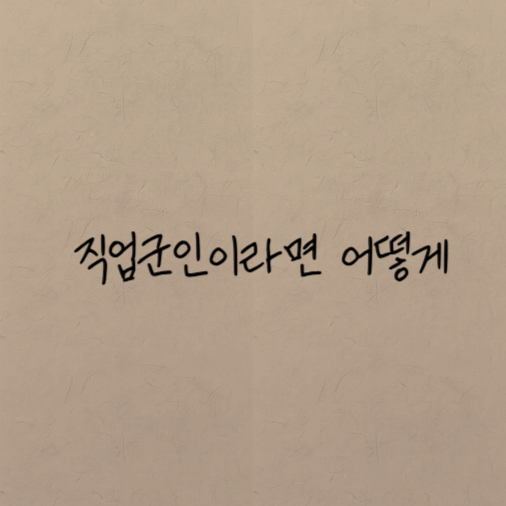 직업군인이라면 어떻게